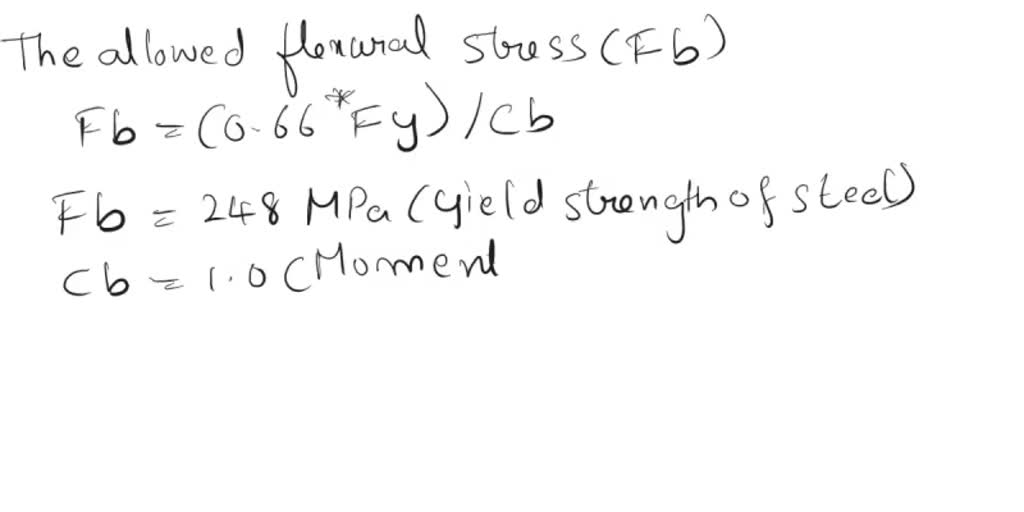 The allowed flexural stress (Fb)
Fb = (0.66*Fy)/Cb
Fb = 248 MPa (yield strength of steel)
Cb = 1.0 (Moment